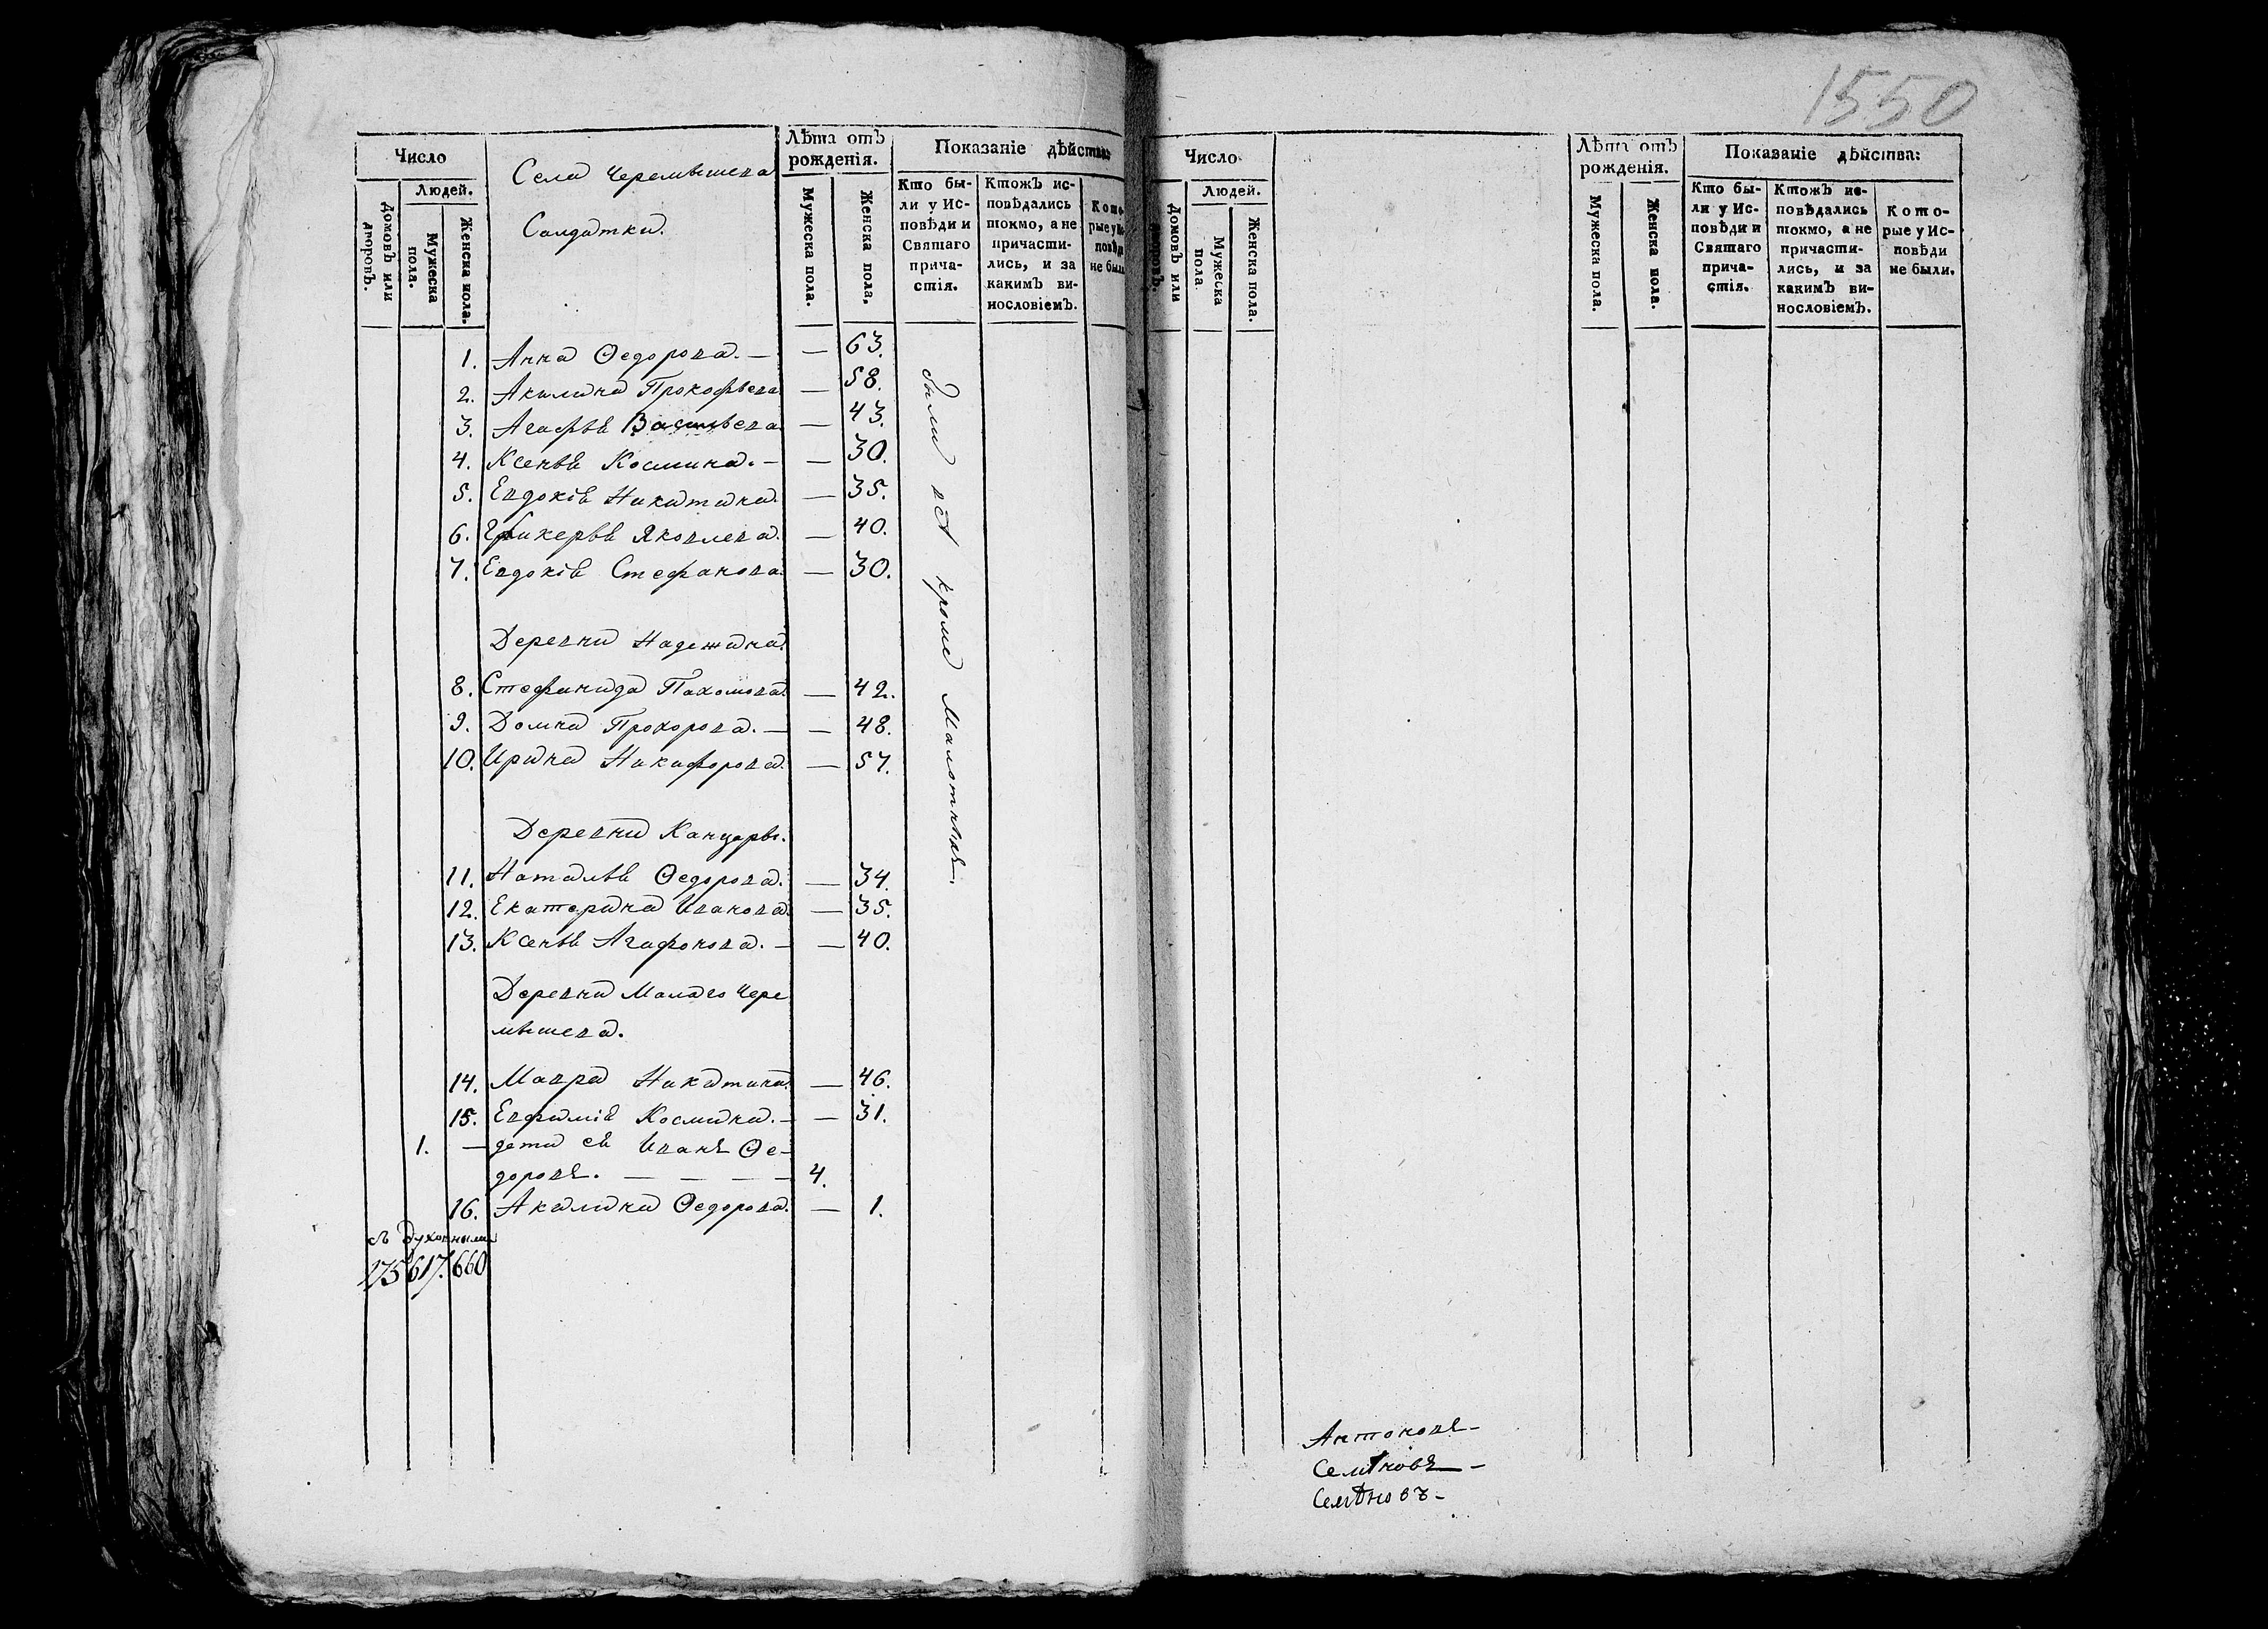 1550
Число
Людей.
Домовъ или дворовъ.
Мужеска пола.
Женска пола.
Села Черемышева
Солдатки.
Лѣта отъ рожденія.
Мужеска пола.
Женска пола.
Показаніе дѣйства:
Кто бы-
ли у Ис-
повѣди и
Святаго
прича-
стія.
Ктожъ ис-
повѣдались
токмо, а не
причасти-
лись, и за
какимъ ви-
нословіемъ.
не были
1. Анна Ѳедорова. — — 63.
2. Акилина Прокофьева — 58.
3. Агафья Васильева. — 43.
4. Ксенья Космина. — — 30.
5. Евдокія Никитина. — 35.
6. Яковлева. — 40.
7. Евдокія Стефанова. — 30.
Деревни Надежина.
8. Стефанида Пахомова. — 42.
9. Домна Прохорова. — — 48.
10. Ирина Никифорова. — 57.
Деревни Канцеры.
11. Наталья Ѳедорова. — 34.
12. Екатерина Иванова. — 35.
13. Ксенья Агафонова. — — 40.
Деревни Малаго Чере
мышева.
14. Мавра Никитина. — 46.
15. Евфимія Космина. — — 31.
1. — дети ея Иванъ Ѳе-
доровъ. — — — — 4.
16. Акилина Ѳедорова. — 1.
съ духовными
175 617. 660
были всѣ кроме малотнихъ.
Число
Людей.
Домовъ или дворовъ.
Мужеска пола
Женска пола.
Лѣта отъ
рожденія.
Мужеска пола.
Женска пола.
Показаніе дѣйства:
Кто бы-
ли у Ис-
повѣди и
Святаго
прича-
стія.
Ктожъ ис-
повѣдались
токмо, а не
причасти-
лись, и за
какимъ ви-
нословіемъ.
Кото-
рые у Ис-
повѣди
не были.
Антоновъ —
Семѣновъ —
Семѣновъ -